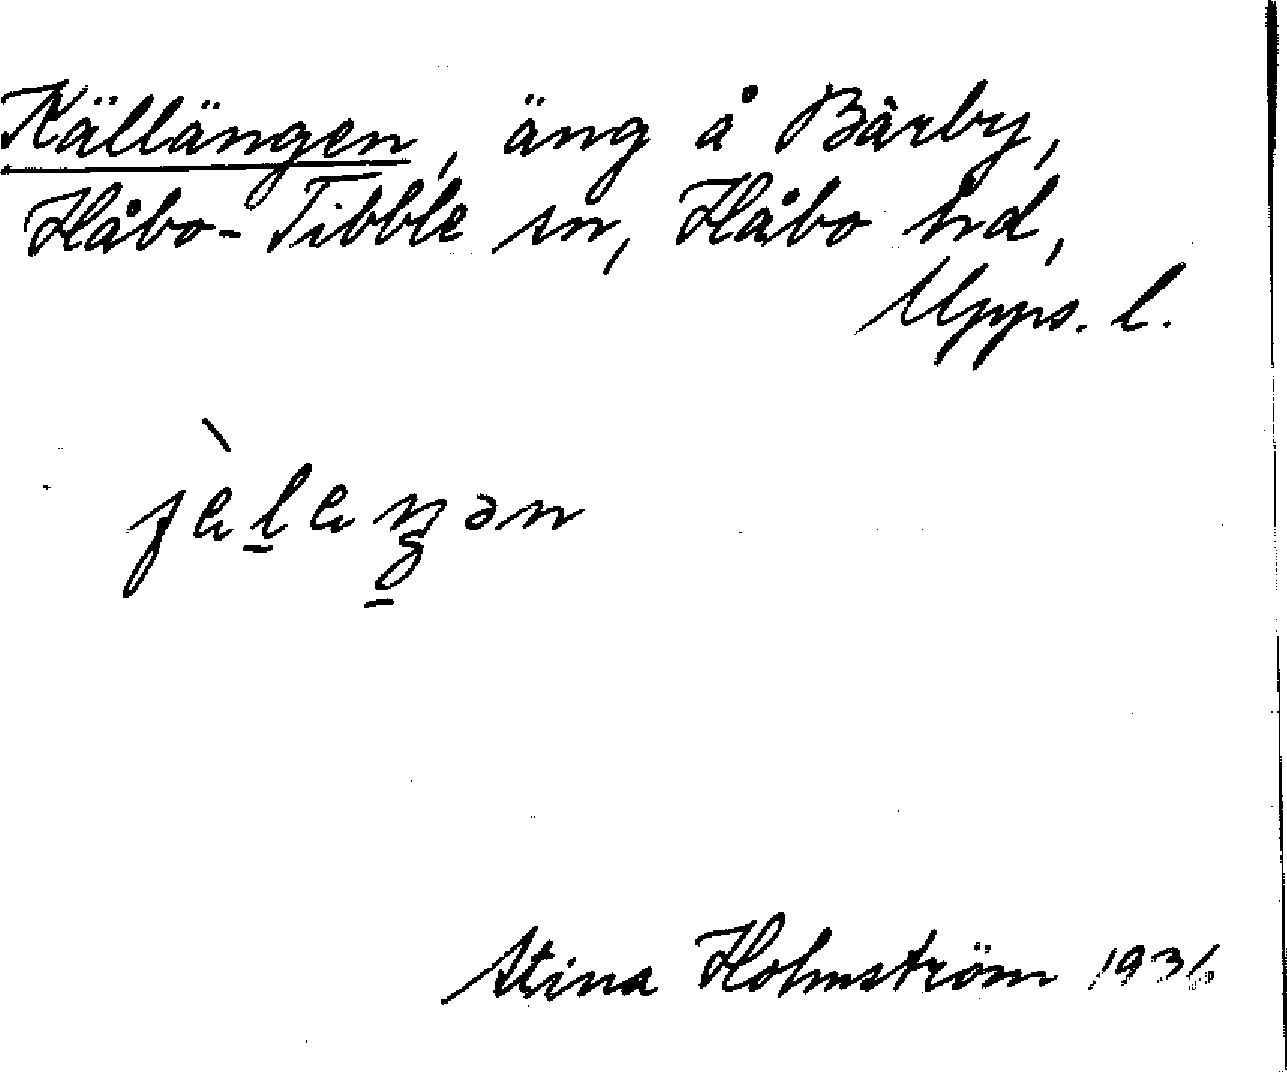 Källängen, äng å Bärby,
Håbo-Tibble sn, Håbo hd,
Upps. l.
Stina Holmström 1936